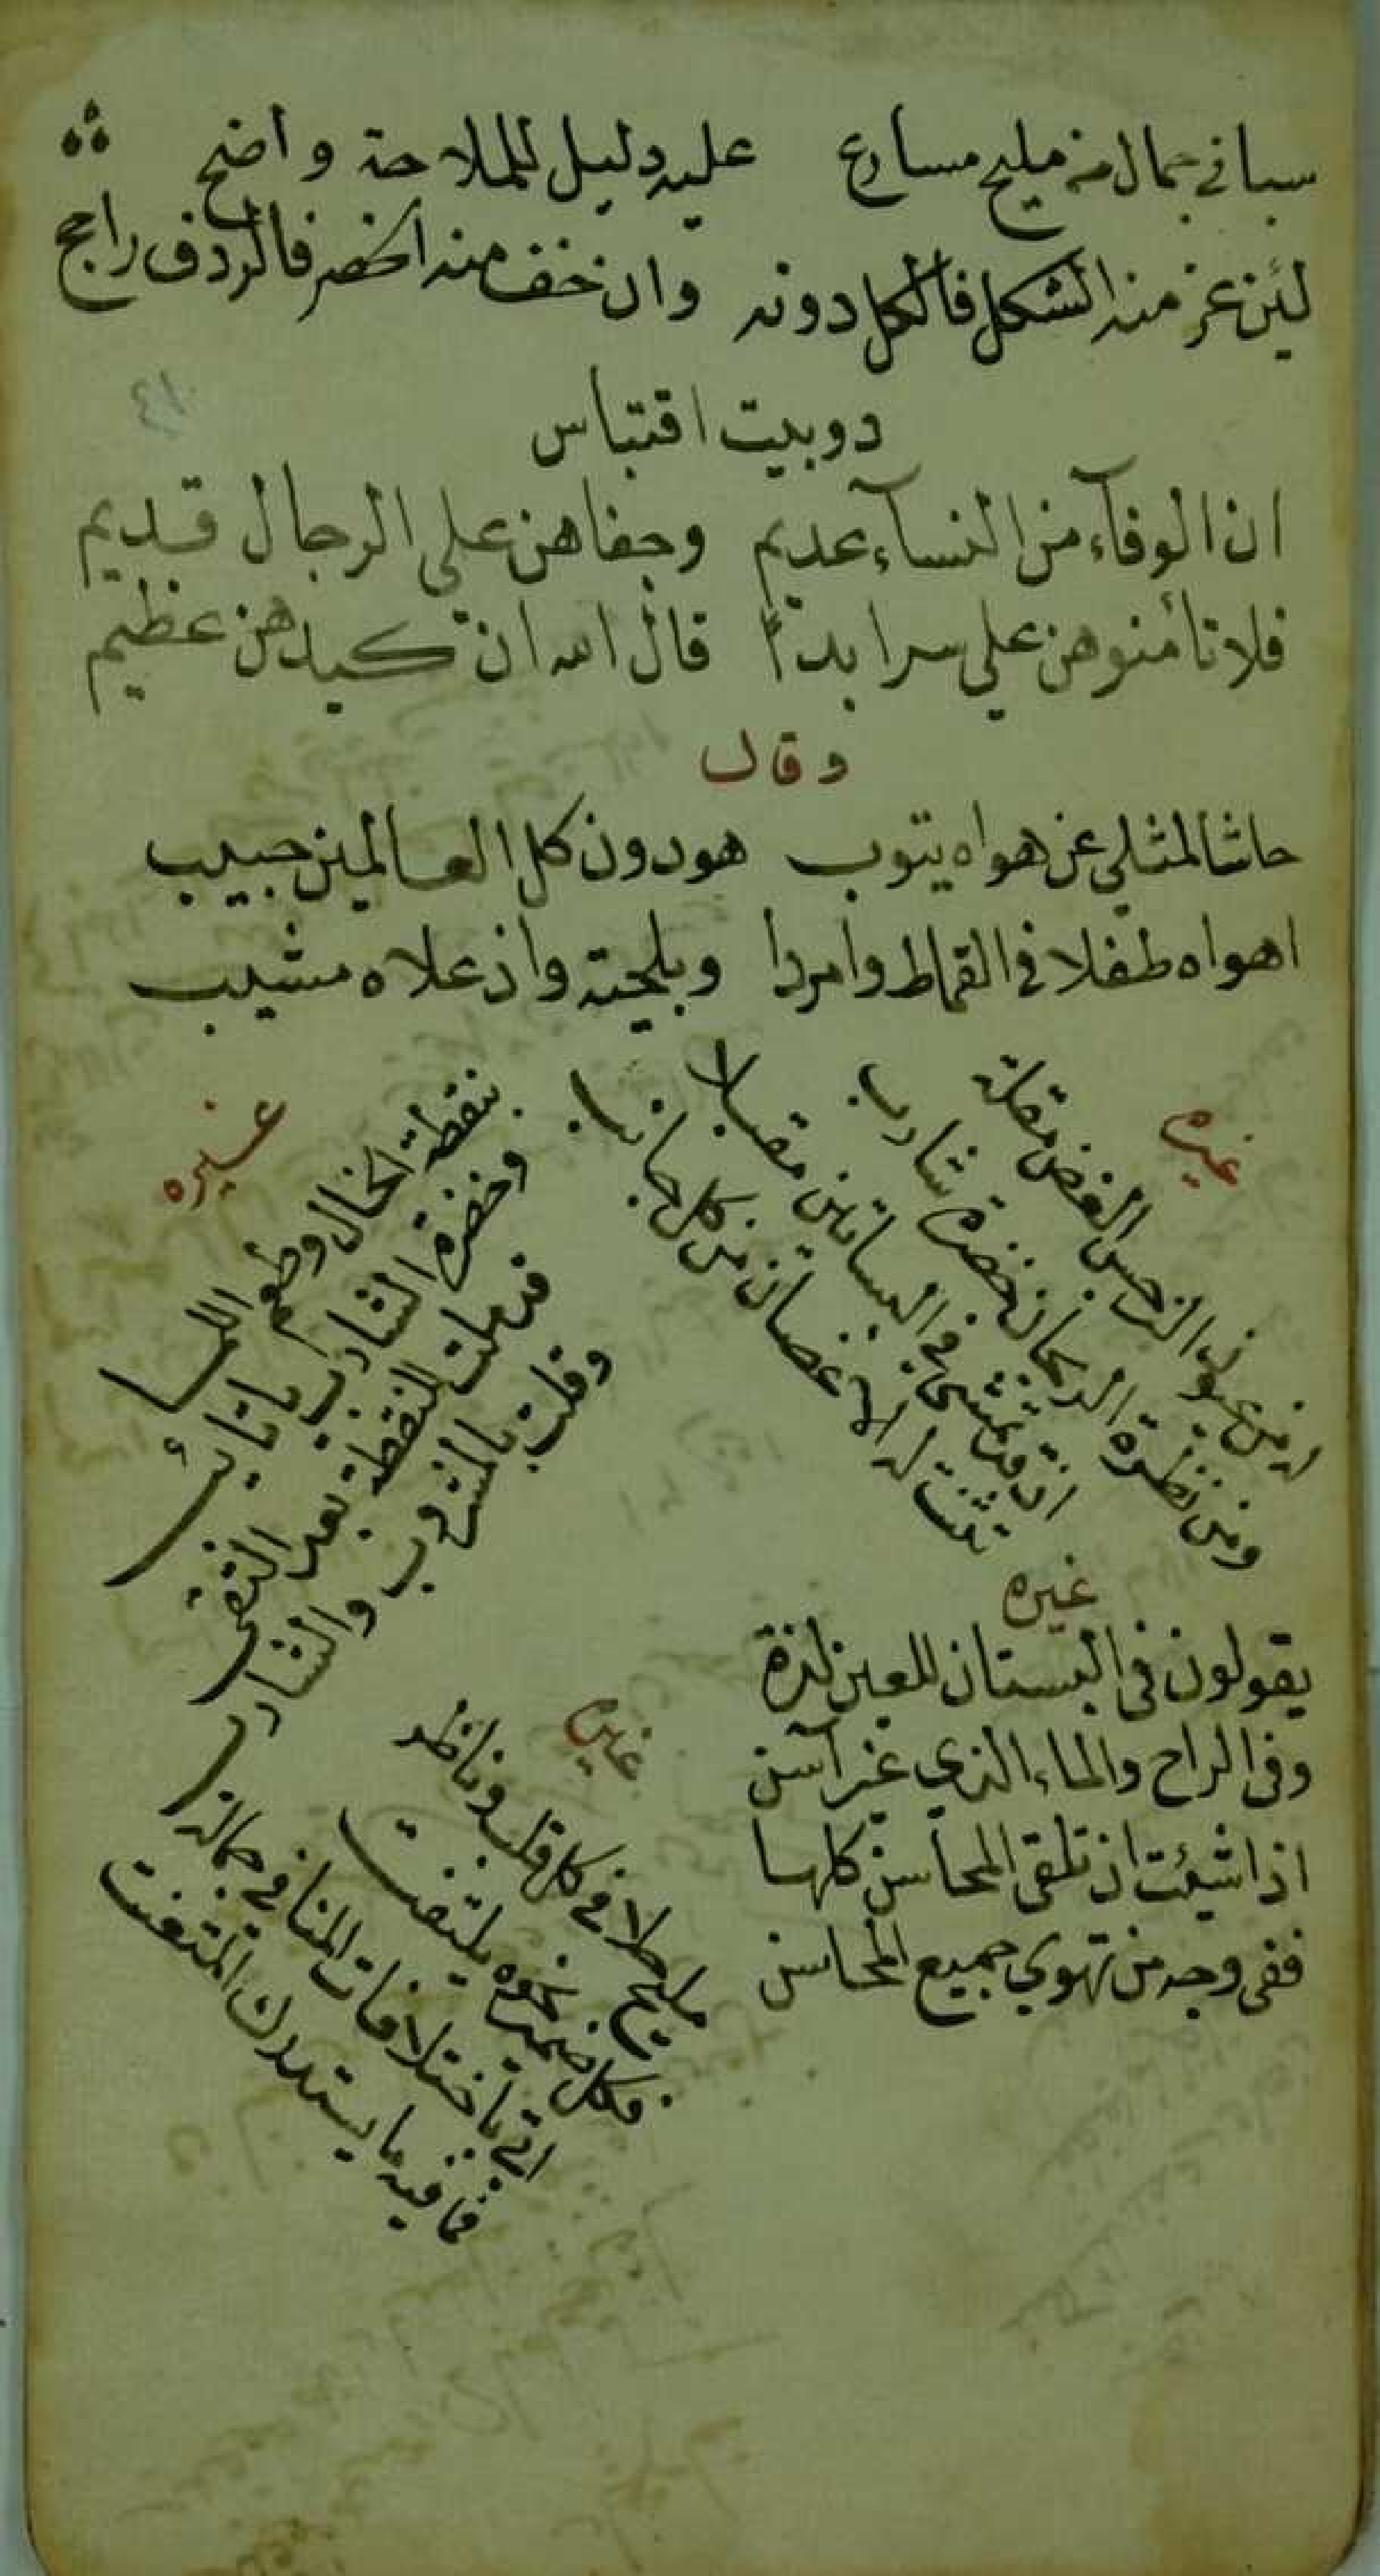 سباني جمال من مليح مسارع عليه دليل للملاحة واضح
لئن عز منه الشكل فالكل دونه وان خف منه الخصر فالردف راجح
دوبيت اقتباس
ان الوفآء من النسآء عديم وجفاهن على الرجال قديم
فلا تأمنوهن على سر ابدا قال الله ان كيدهن عظيم
وقال
حاشا لمثلي عن هواه يتوب هو دون كل العالمين حبيب
اهواه طفلا في القماط وامردا وبلحيته واذ علاه مشيب
غيره
اين عيون النرجس الغض مقلته
ومن نظرة الريحان خضرة شارب
اذ تمشى في البساتين مقبلا
تثنت له الاغصان من كل جانب
غيره
بنقطة الخال وطعم اللما
وخضرة الشارب يا تائب
فزمات النقطة بعد التقى
وقلت بالمشروب والشارب
غيره
يقولون في البستان للعين لذة
وفي الراح والماء الذي غير آسن
اذا شئت ان تلقى المحاسن كلها
ففي وجه من تهوي جميع المحاسن
غيره
مليح حلا في كل قلب وناظر
فكل ضمير نحوه يلتفت
اتى باختلافات المنا في جماله
فما فيه ما يستدرك المتعنت